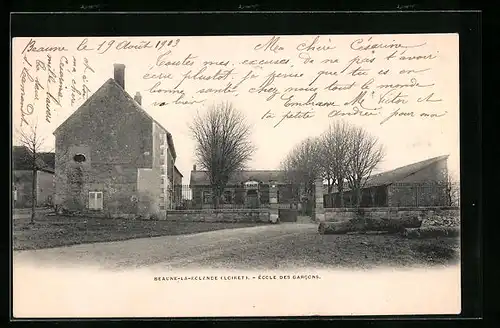 Beaune le 19 Août 1903
Ma chère Césarine
Toutes mes excuses de ne pas t'avoir
écrire plustot. Je pense que tu es en
bonne santé chez nous tout le monde
va bien
Embrasse Mr Victor et
la petite Andrée pour moi
et chez toi
ma chère
Césarine
mille baisers
BEAUNE-LA-ROLANDE (LOIRET). - ÉCOLE DES GARÇONS.